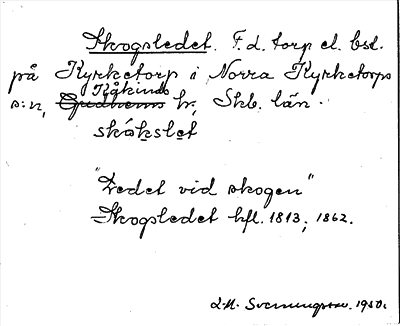 Skogsledet. F.d. torp el. bst.
på Kyrketorp i Norra Kyrketorps
Kåkinds
s:n, Gudhems hr, Skb. län.
skåkslet
"Ledet vid skogen"
Skogsledet kfl. 1813, 1862.
L.M. Svenningson. 1950.